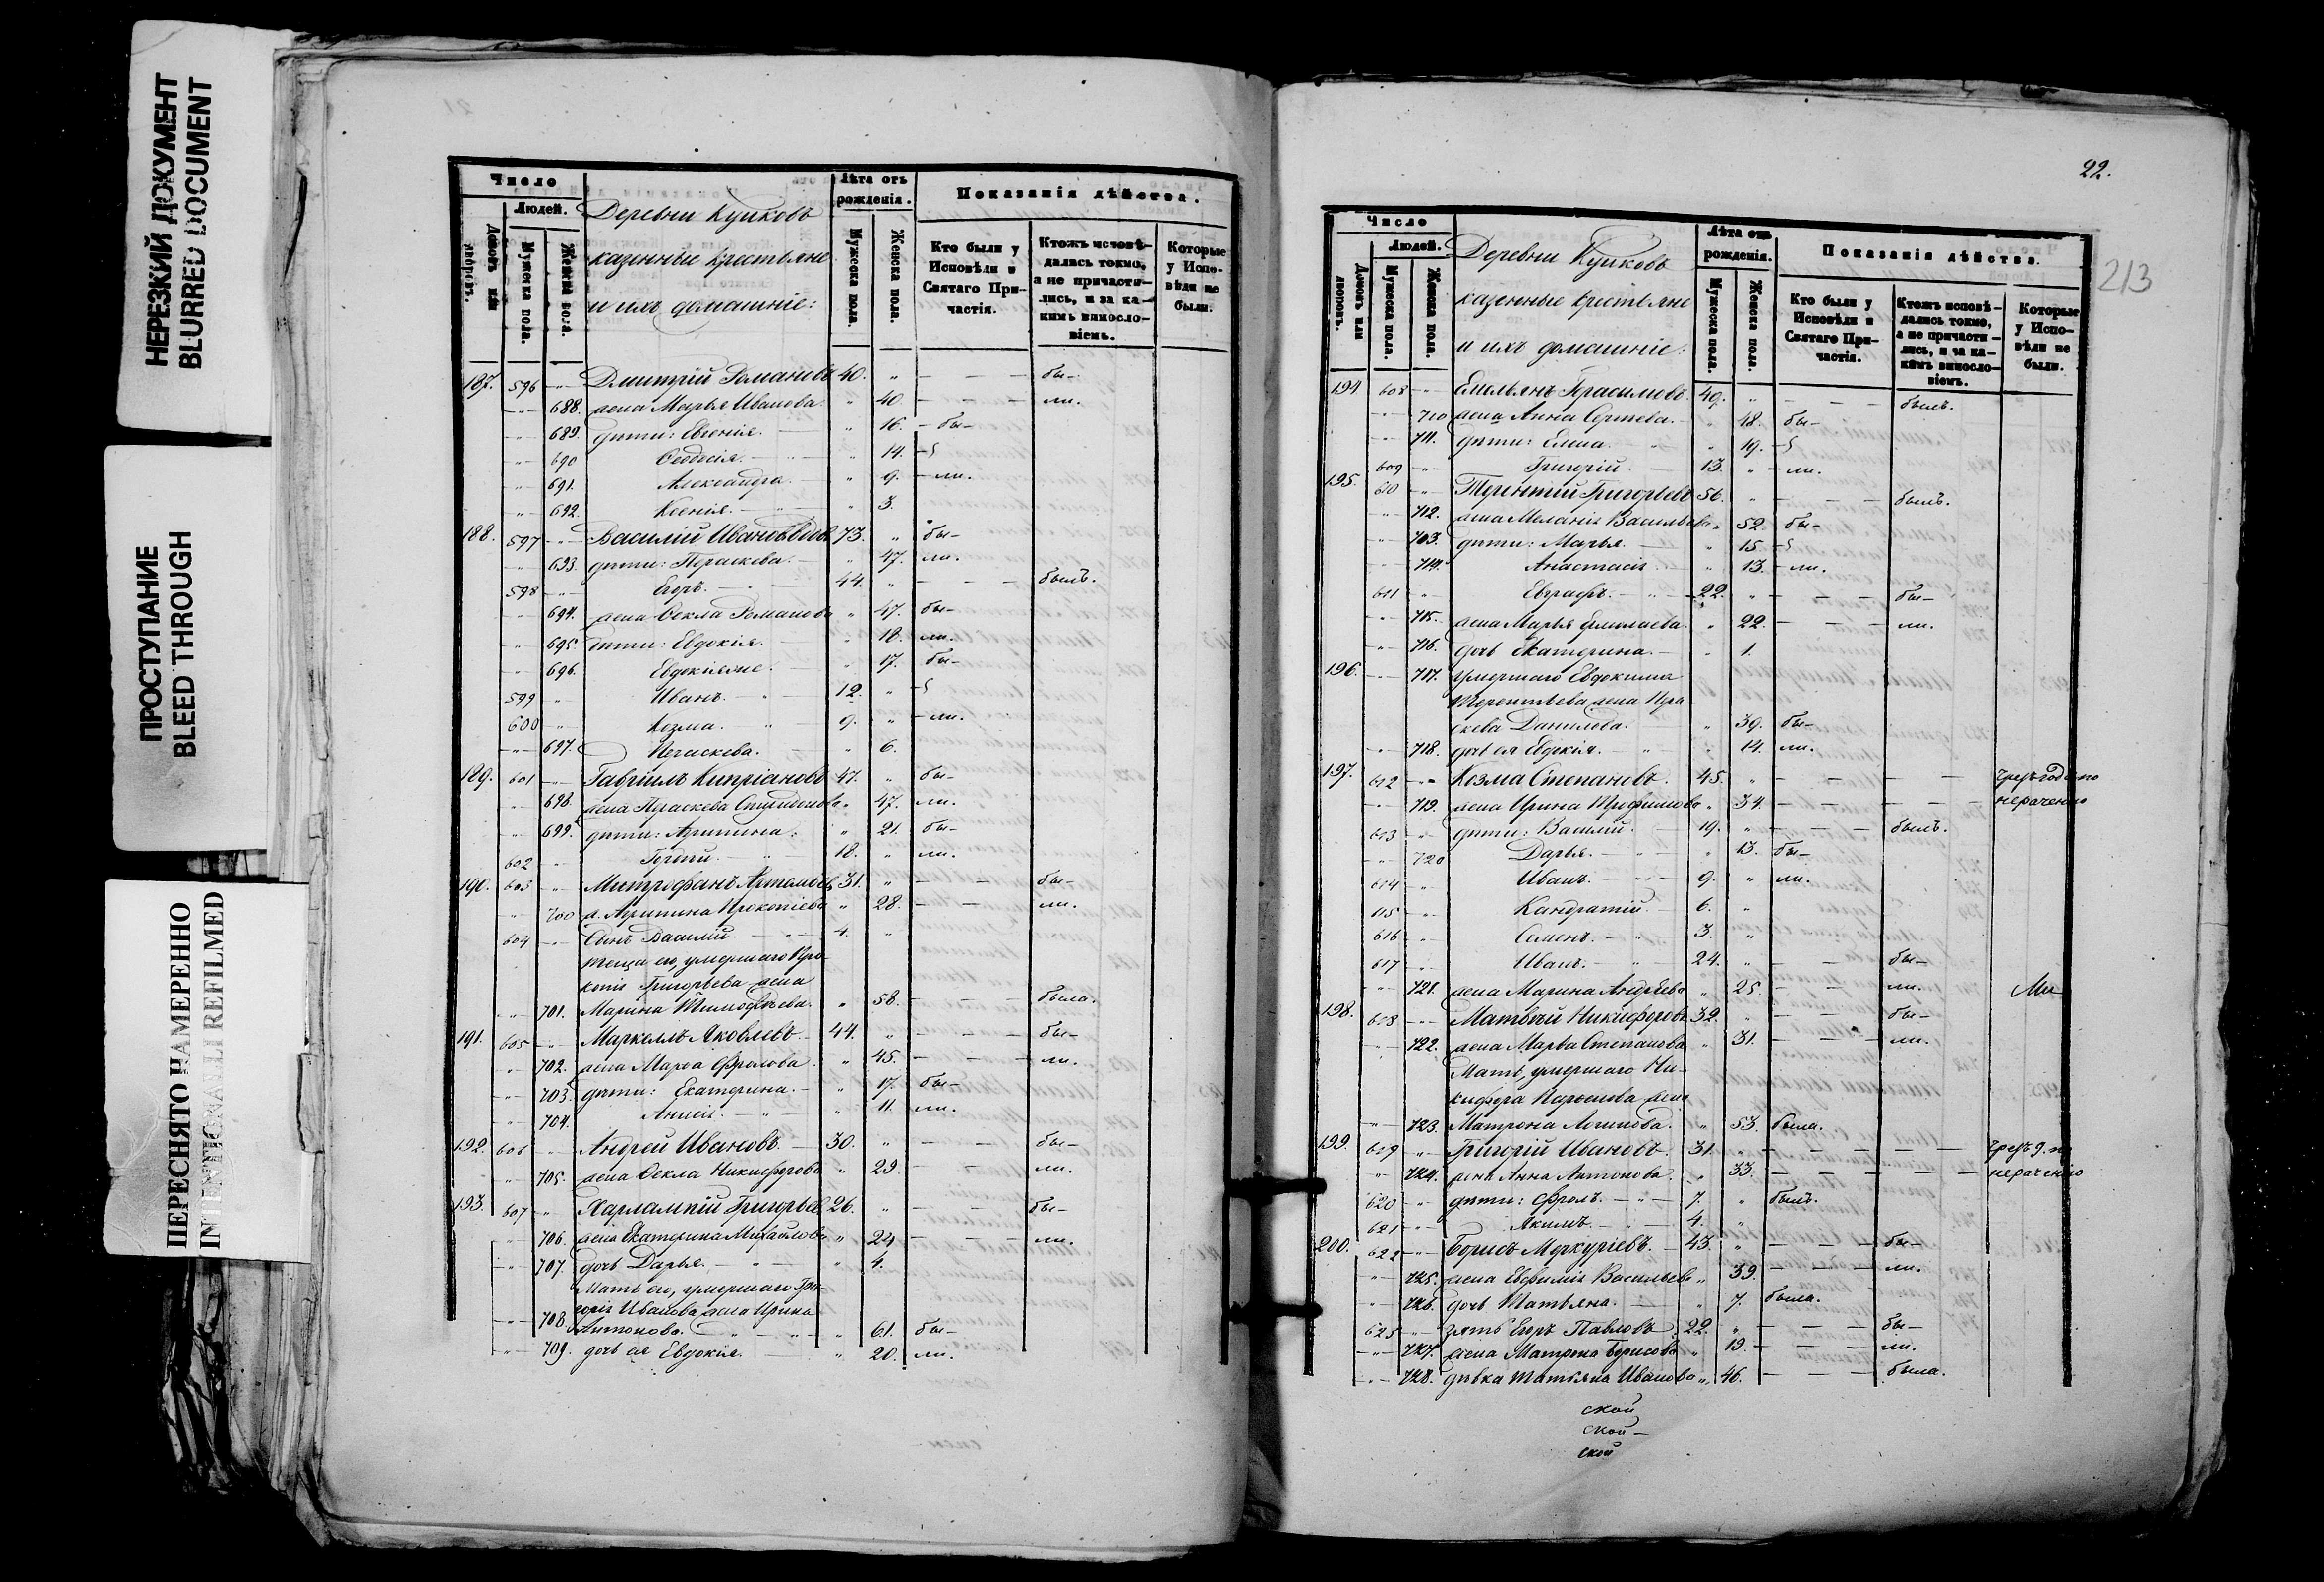 НЕРЕЗКИЙ ДОКУМЕНТ
BLURRED DOCUMENT
ПРОСТУПАНИЕ
BLEED THROUGH
ПЕРЕСНЯТО НАМЕРЕННО
INTENTIONALLI REFILMED
Число
Людей.
Домовъ или дворовъ.
Мужеска пола.
Женска пола.
Деревни Куликовъ
казенные крестьяне
и ихъ домашніе:
Лѣта отъ рожденія.
Мужеска пола.
Женска пола.
Показанія дѣйства.
Кто были у Исповѣди и Святаго Причастія.
Ктожъ исповѣдались токмо, а не причастились, и за какимъ винословіемъ.
Которые у Исповѣди не были.
187. 596 Дмитрій Романовъ 40. бы-
688. жена Марья Иванова. 40. ли.
689. дѣти: Евгенія. 16. бы-
690 Ѳеодосія. 14.
691. Александра. 9. ли.
692. Ксенія. 3.
188. 597 Василій Ивановъ вдов. 73. бы-
693. дѣти: Параскева. 47. ли.
598 Егоръ. 44. былъ.
694. жена Ѳекла Романова 47. бы-
695. дѣти: Евдокія. 18. ли.
696. Евдокія же. 17. бы-
599 Иванъ. 12.
600 Козма. 9. ли.
697. Параскева. 6.
189. 601 Гавріилъ Кипріановъ 47. бы-
698. жена Параскева Спиридонова 47. ли.
699. дѣти: Агрипина. 21. бы-
602 18. ли.
190. 603 Митрофанъ Артемовъ 31. бы-
700 ж. Агрипина Прокопіева 28. ли.
604 Сынъ Василій. 4.
теща его, умершаго Про-
копія Григорьева жена
701. Марина Тимофѣева. 58. была.
191. 605 Маркеллъ Яковлевъ. 44. бы-
702. жена Марѳа Фролова. 45. ли.
703. дѣти: Екатерина. 17. бы-
704. Анисія. 11. ли.
192. 606 Андрей Ивановъ. 30. бы-
705. жена Ѳекла Никифорова 29. ли.
193. 607 Харлампій Григорьев. 26. бы-
706. жена Екатерина Михайлова 24 ли.
707. дочь Дарья. 4.
Мать его, умершаго Гри-
горія Иванова жена Ирина
708. Антонова. 61. бы-
709. дочь ея Евдокія. 20. ли.
22.
213
Число
Людей.
Домовъ или дворовъ.
Мужеска пола.
Женска пола.
Деревни Куликовъ
казенные крестьяне
и ихъ домашніе:
Лѣта отъ рожденія.
Мужеска пола.
Женска пола.
Показанія дѣйства.
Кто были у Исповѣди и Святаго Причастія.
Ктожъ исповѣдались токмо, а не причастились, и за какимъ винословіемъ.
Которые у Исповѣди не были.
194 608 Емельянъ Герасимовъ. 49. былъ.
710 жена Анна Сергѣева. 48. бы-
711. дѣти: Елена. 19.
609 Григорій. 13. ли.
195. 610 Терентій Григорьевъ 56. былъ.
712. жена Меланія Васильева 52. бы-
703. дѣти: Марья. 15.
714. Анастасія. 13. ли.
611 Евграфъ. 22. бы-
715. жена Марья 22. ли.
716. дочь Екатерина. 1.
196. 717. умершаго Евдокима
Терентьева жена Пра-
скева Данилова. 39. бы-
718. дочь ея Евдокія. 14. ли.
197. 612 Козма Степановъ. 45. чрезъ год. по
719. жена Ирина Трофимова 34. нераченію
613 дѣти: Василій. 19. былъ.
720 Дарья. 13. бы-
614 Иванъ. 9. ли.
615 Кандратій. 6.
616 Семенъ. 3.
617 Иванъ. 24. бы-
721. жена Марина Андреева 25. ли.
198. 618 Матвѣй Никифоровъ 32. бы-
722. жена Марѳа Степанова 31. ли.
Мать, умершаго Ни-
кифора жена
723. Матрона Логинова. 53. была.
199. 619 Григорій Ивановъ. 31. чрезъ г. по
724. жена Анна Антонова. 33. нераченію
620 дѣти: Фролъ. 7. былъ.
621 Акимъ. 4.
200. 622 Борисъ Меркуріевъ. 43. бы-
725. жена Евфимія Васильева 39. ли.
726. дочь Татьяна. 7. была.
623 зять Егоръ Павловъ 22. бы-
727. жена Матрона Борисова 19. ли.
728. дѣвка Татьяна Иванова 46. была.
ской
ской
ской